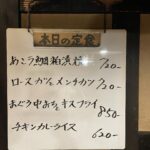 本日の定食
あこう鯛粕漬 720-
ロースカツ メンチカツ 720-
まぐろ中おち キスフライ 850-
チキンカレーライス 620-